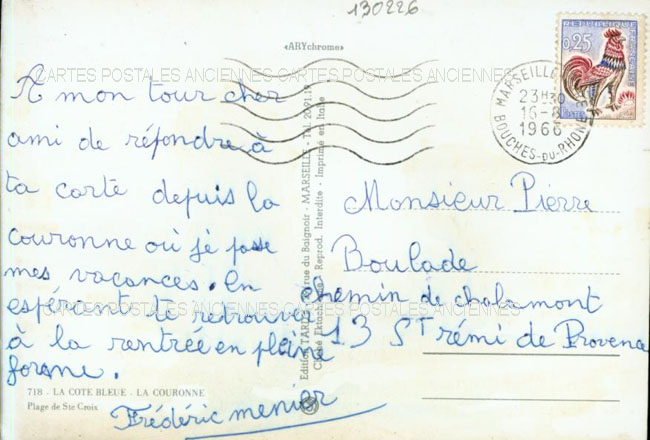 130226
«ARYchrome»
REPUBLIQUE FRANÇAISE
0,25
MARSEILLE
23H30
16-8
1966
BOUCHES-DU-RHONE
CARTES POSTALES ANCIENNES CARTES POSTALES ANCIENNES CARTES POSTALES ANCIENNES
A mon tour cher
ami de répondre à
ta carte depuis la
couronne où je passe
mes vacances. En
espérant te retrouver
à la rentrée en pleine
forme.
Frédéric menier
Monsieur Pierre
Boulade
chemin de chalamont
13 St rémi de Provence
Edition TARDY rue du Baignoir - MARSEILLE - Tél. 20.21.19
Cliché Reprod. Interdite - Imprimé en Italie
718 - LA COTE BLEUE - LA COURONNE
Plage de Ste Croix